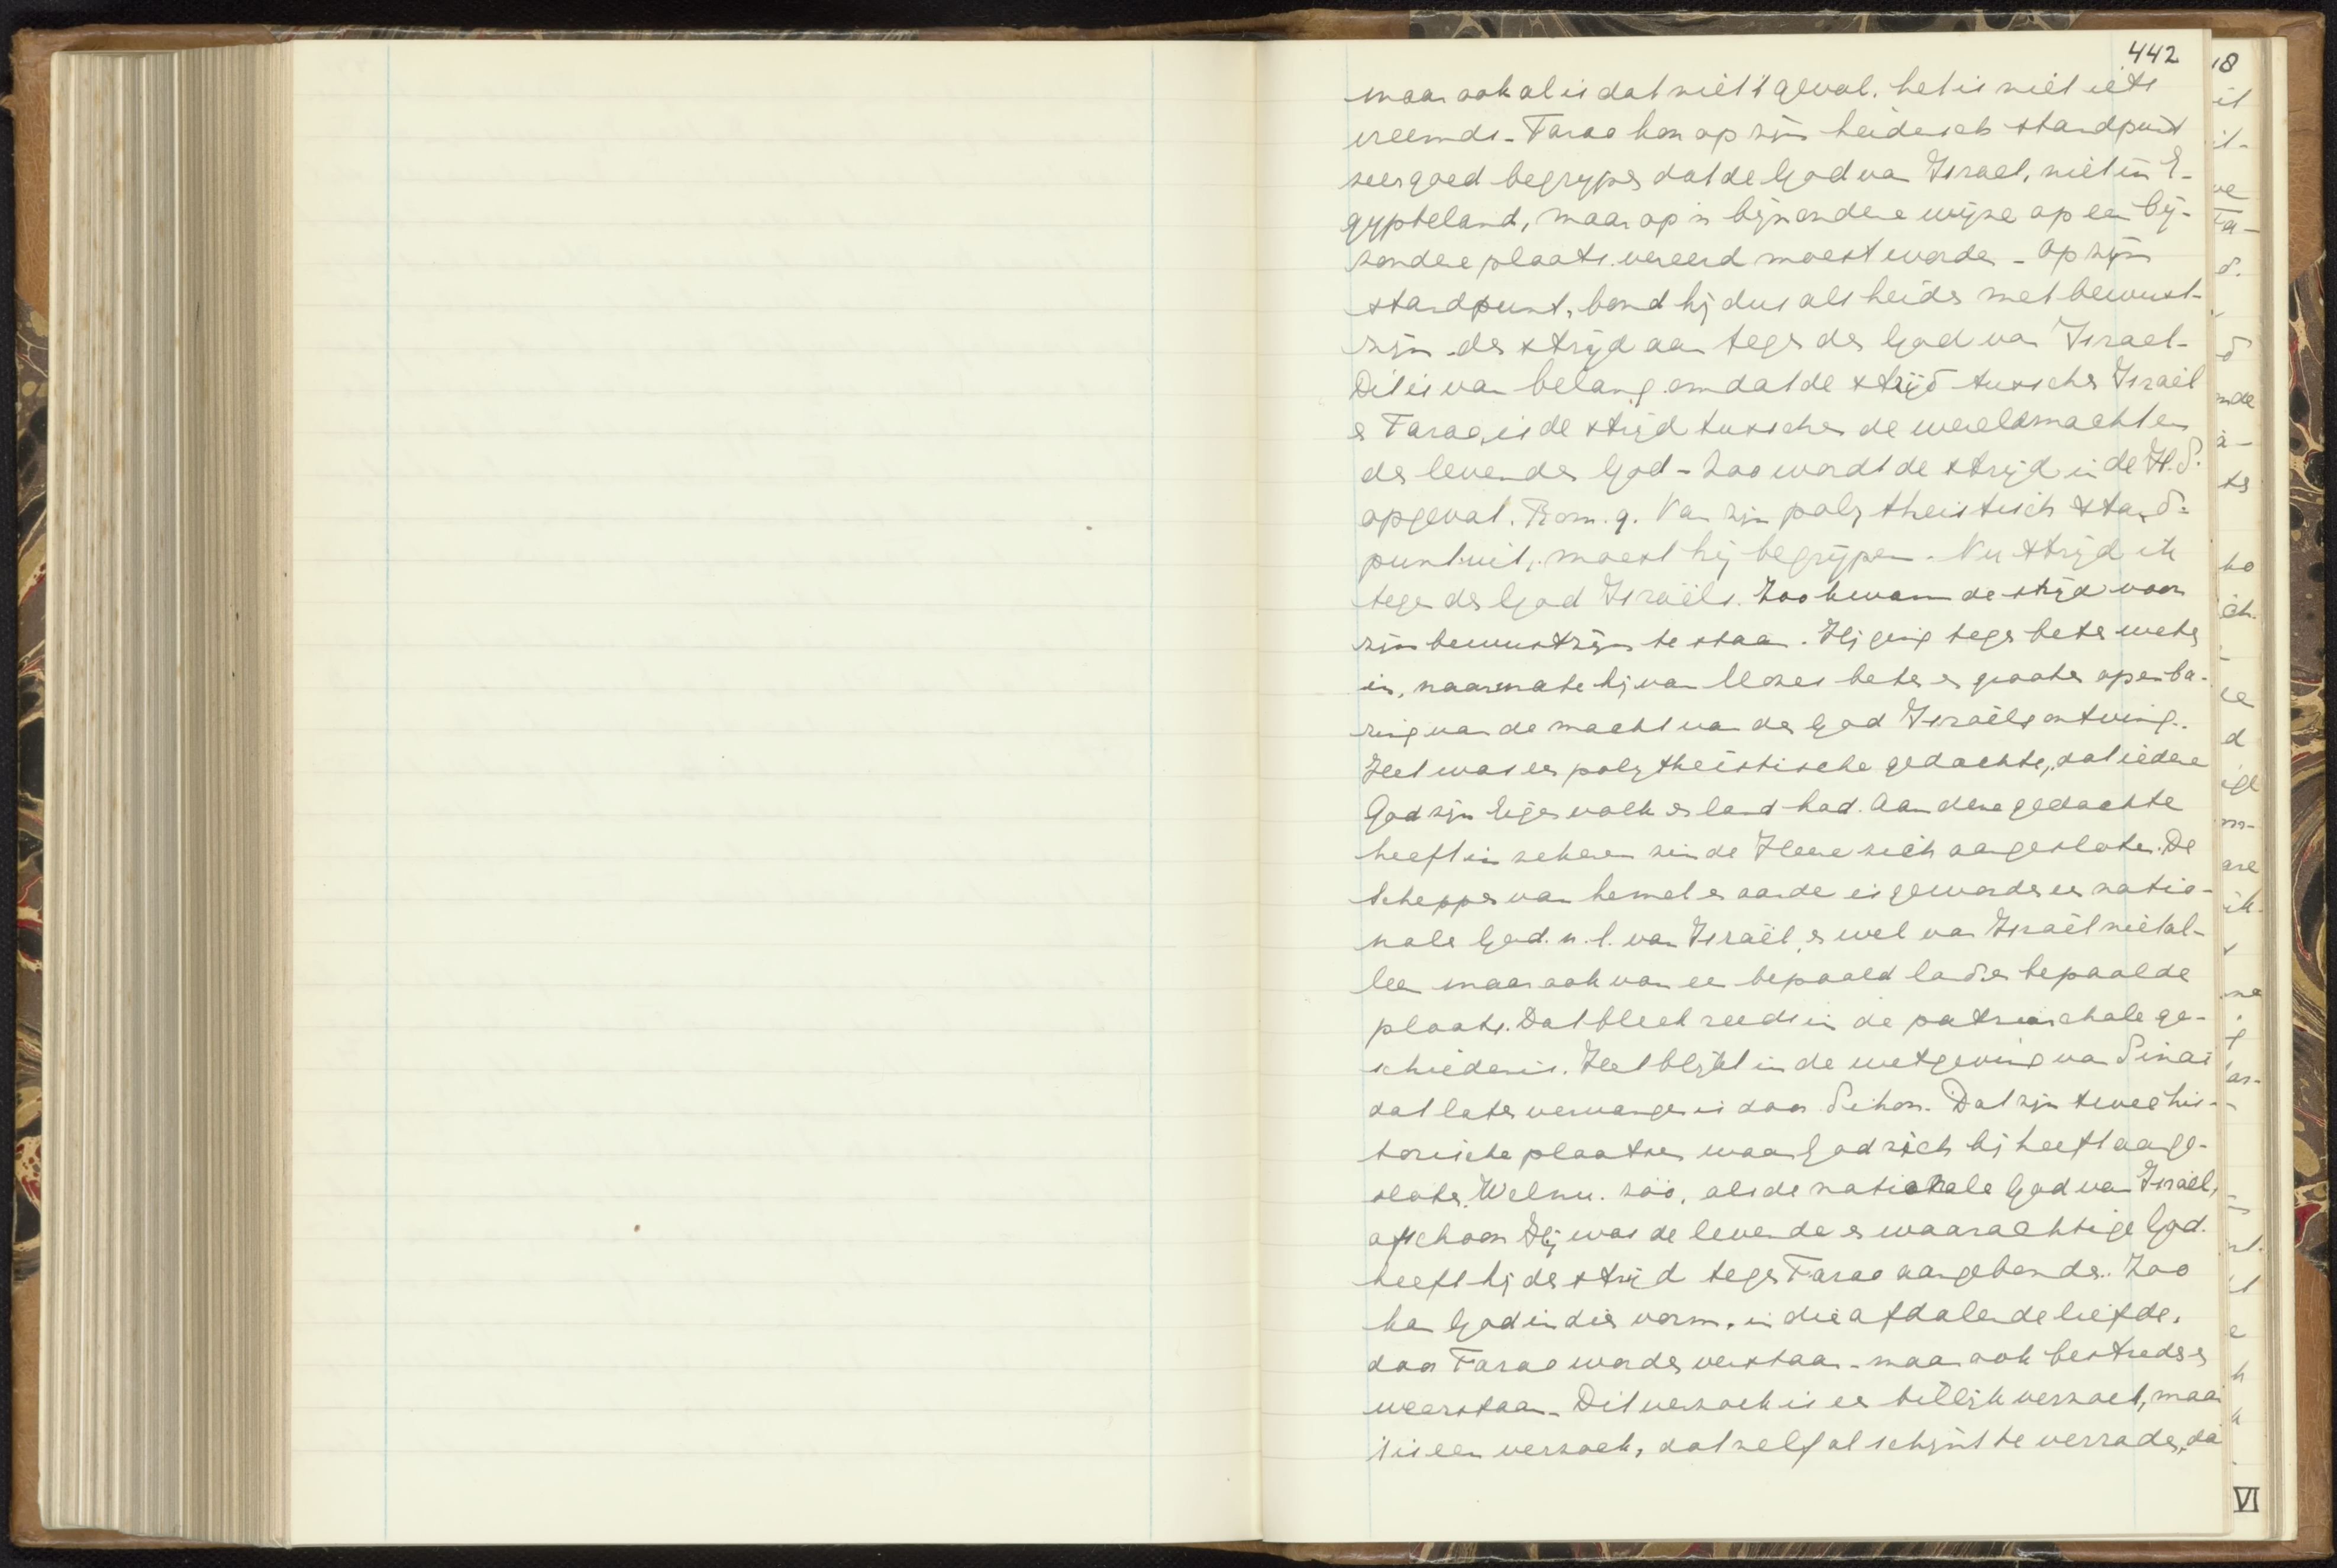 442
maar ook al is dat niet 't geval, het is niet iets
vreemds - Farao kon op zijn heidensch standpunt
zeer goed begrijpen dat de God van Israel, niet in E-
gypteland, maar op 'n bijzondere wijze op een bij-
zondere plaats vereerd moest worden - Op zijn
standpunt, bond hij dus als heiden met bewust-
zijn den strijd aan tegen den God van Israel -
Dit is van belang omdat de strijd tusschen Israël
en Farao, is de strijd tusschen de wereldmacht en
den levenden God - Zoo wordt de strijd in de H.S.
opgevat. Rom. 9. Van zijn polytheistisch stand-
punt uit, moest hij begrijpen. Nu strijd ik
tegen den God Israëls. Zoo kwam de strijd voor
zijn bewustzijn te staan. Hij ging tegen beter weten
in, naarmate hij van Mozes beter en grooter openba-
ring van de macht van den God Israëls ontving.
Het was een polytheïstische gedachte, dat iedere
God zijn eigen volk en land had. Aan deze gedachte
heeft in zekeren zin de Heere zich aangesloten. De
Schepper van hemel en aarde is geworden een natio-
nale God. n.l. van Israël, en wel van Israël niet al-
leen maar ook van een bepaald land en bepaalde
plaats. Dat bleek reeds in de patriarchale ge-
schiedenis. Het blijkt in de wetgeving van Sinaï
dat later vervangen is door Sihon. Dat zijn twee his-
torische plaatsen waar God zich bij heeft aange-
sloten. Welnu. zóó, als de nationale God van Israël,
ofschoon Hij was de levende en waarachtige God.
heeft hij den strijd tegen Farao aangebonden. Zoo
kan God in dien vorm, in die afdalende liefde,
door Farao worden verstaan - maar ook bestreden en
weerstaan - Dit verzoek is een billijk verzoek, maar
't is een verzoek, dat zelf al schijnt te verraden, da
VI